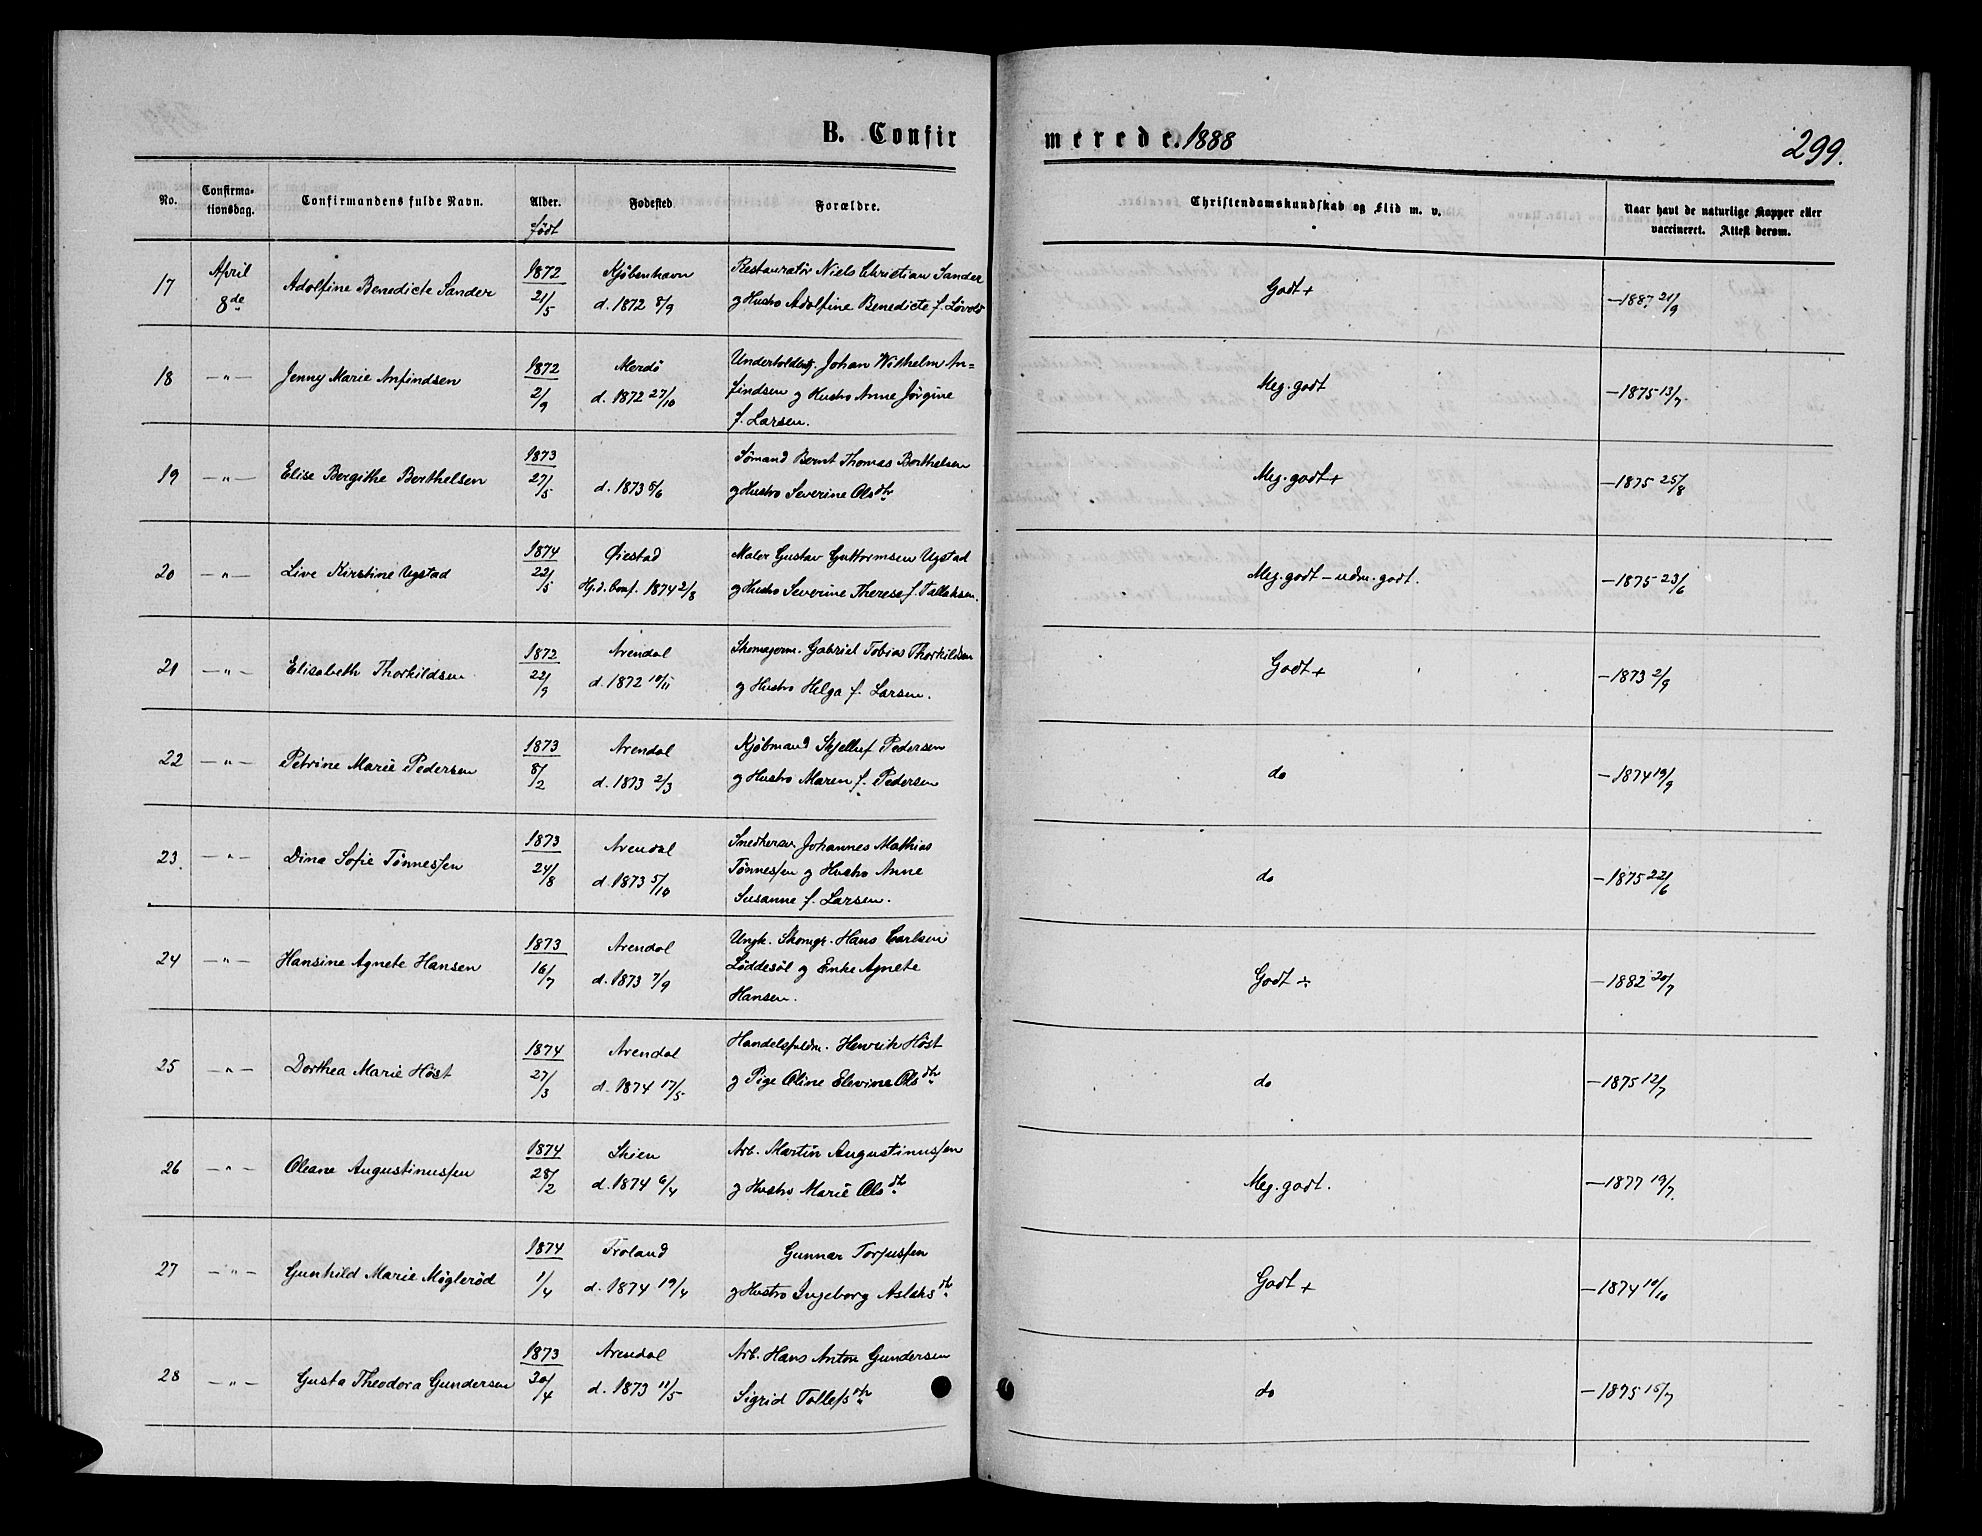 B. Confirmerede. 1888
299.
No. | Confirmationsdag. | Confirmandens fulde Navn. | Alder. født | Fødested. | Forældre. | Christendomskundskab og Flid m. v. | Naar havt de naturlige Kopper eller vaccineret. Attest derom.
17 | April 8de | Adolfine Benedicte Sander | 1872 21/5 | Kjøbenhavn d. 1872 8/9 | Restauratør Niels Christian Sander g Hustro Adolfine Benedicte f. Løvold | Godt + | – 1887 21/9
18 | – " – | Jenny Marie Anfindsen | 1872 2/9 | Merdö d. 1872 27/10 | Underholdng. Johan Wilhelm Anfindsen g Hustro Anne Jørgine f. Larsen. | Meg. godt | – 1875 13/7
19 | – " – | Elise Bergithe Berthelsen | 1873 27/5 | d. 1873 5/6 | Sömand Bernt Thomas Berthelsen g Hustro Severine Olsdtr | Meg. godt + | – 1875 25/8
20 | – " – | Live Kirstine Ugstad | 1874 22/5 | Øiestad Hj.d. Conf. 1874 2/8 | Maler Gustav Guttormsen Ugstad g Hustro Severine Therese f. Tallaksen. | Meg. godt – udm. godt. | – 1875 23/6
21 | – " – | Elisabeth Thorkildsen | 1872 22/9 | Arendal d. 1872 10/11 | Skomagerm. Gabriel Tobias Thorkildsen g Hustro Helga f. Larsen. | Godt + | – 1873 2/9
22 | – " – | Petrine Marie Pedersen | 1873 8/2 | Arendal d. 1873 2/3 | Kjøbmand Skjelluf Pedersen g Hustro Maren f. Pedersen | do | – 1874 19/9
23 | – " – | Dina Sofie Tønnessen | 1873 24/8 | Arendal d. 1873 5/10 | Snedkersv. Johannes Mathias Tönnessen g Hustro Anne Susanne f. Larsen. | do | – 1875 22/6
24 | – " – | Hansine Agnete Hansen | 1873 16/7 | Arendal d. 1873 7/9 | Ungk. Skomgr. Hans Carlsen Løddesöl g Enke Agnete Hansen. | Godt ÷ | – 1882 20/7
25 | – " – | Dorthea Marie Höst | 1874 27/3 | Arendal d. 1874 17/5 | Handelsfuldm. Henrik Höst g Pige Oline Elevine Olsdtr | do | – 1875 12/7
26 | – " – | Oleane Augustinussen | 1874 28/2 | Skien d. 1874 6/4 | Arb. Martin Augustinussen g Hustro Marie Olsdtr | Meg. godt. | – 1877 19/7
27 | – " – | Gunhild Marie Möglerød | 1874 1/4 | Froland d. 1874 19/4 | Gunnar Torjussen g Hustro Ingeborg Aslaksdtr | Godt + | – 1874 10/10
28 | – " – | Gusta Theodora Gundersen | 1873 30/4 | Arendal d. 1873 11/5 | Arb. Hans Anton Gundersen Sigrid Tollefsdtr | do | – 1875 15/7